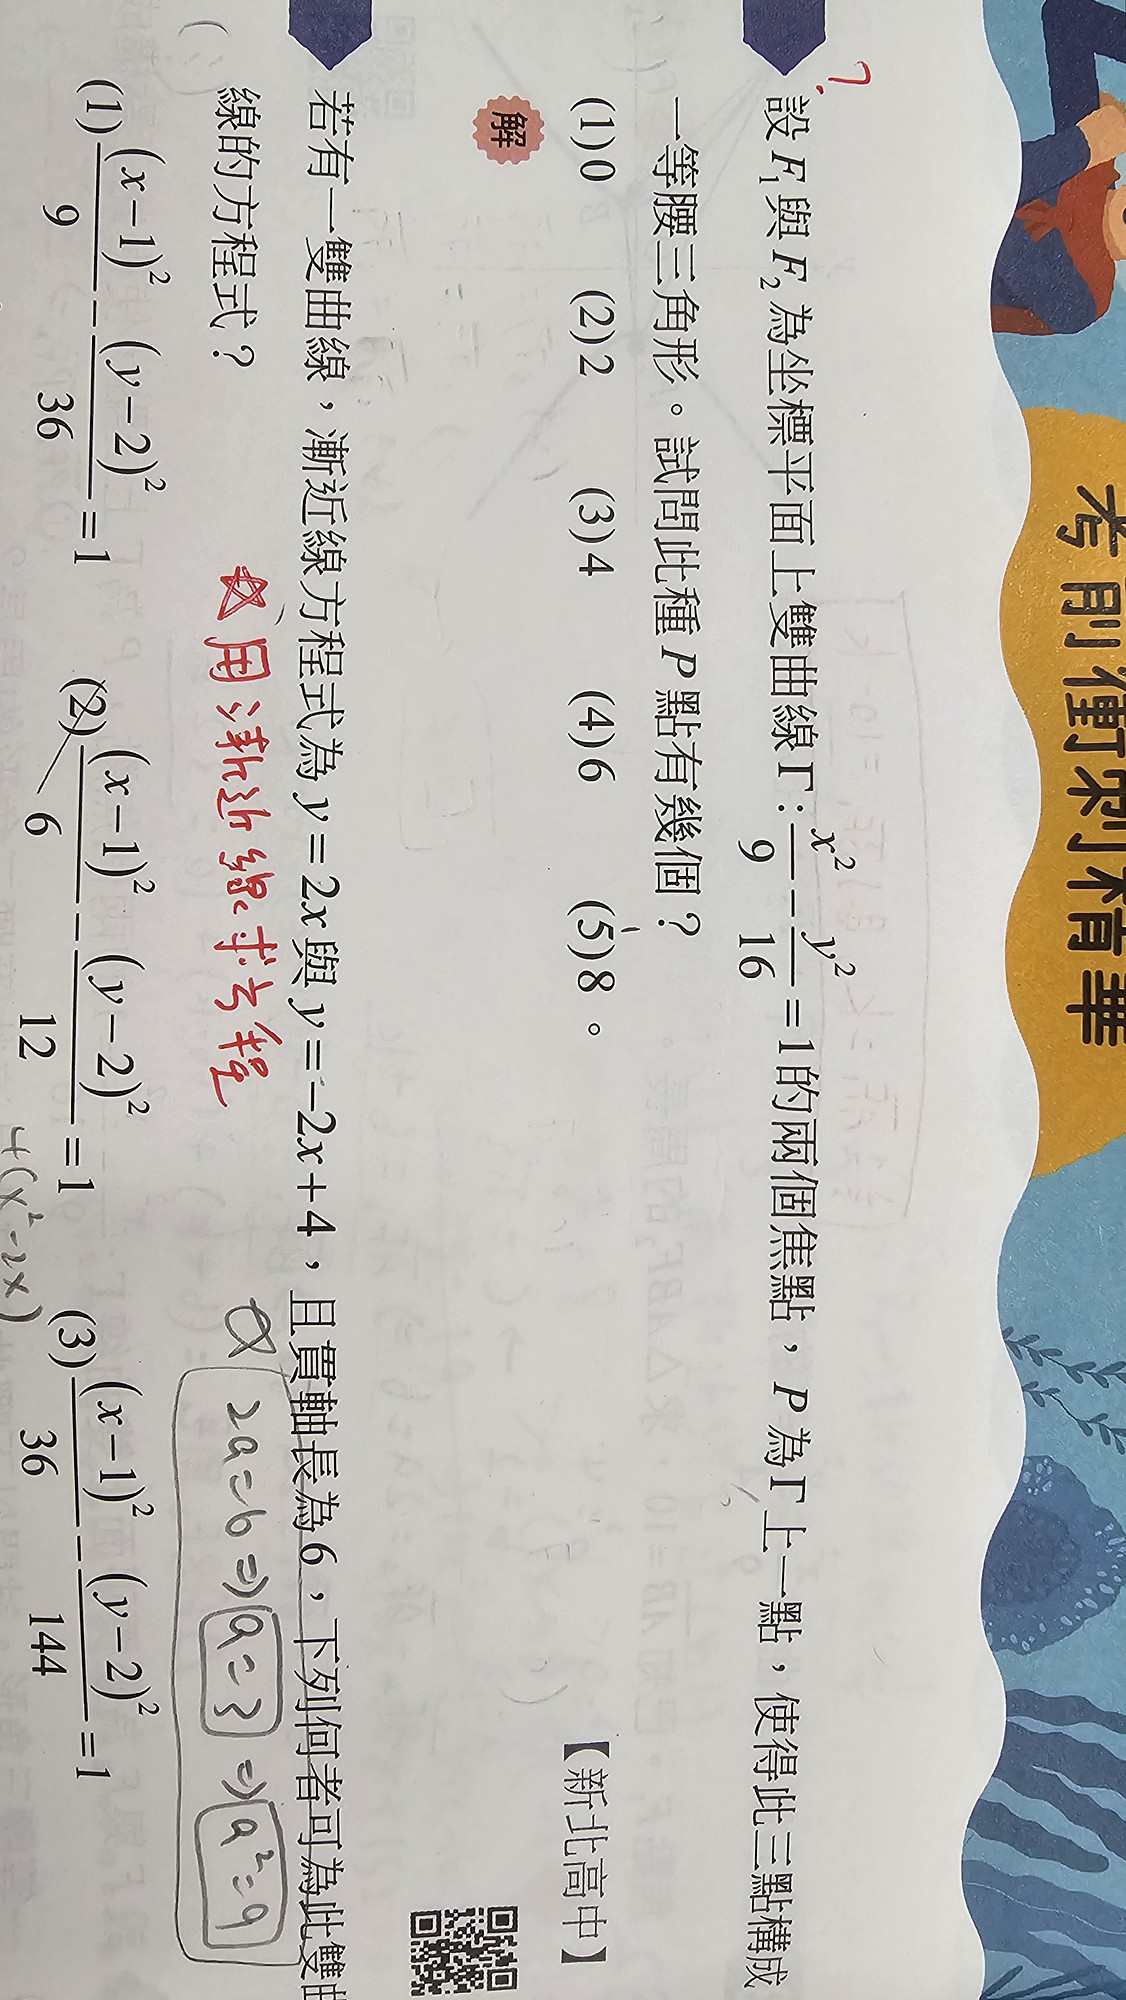 考前衝刺精華
?
設 F₁ 與 F₂ 為坐標平面上雙曲線 Γ: x²/9 − y²/16 = 1 的兩個焦點，P 為 Γ 上一點，使得此三點構成
一等腰三角形。試問此種 P 點有幾個？
(1)0 (2)2 (3)4 (4)6 (5)8。
【新北高中】
解
若有一雙曲線，漸近線方程式為 y = 2x 與 y = −2x + 4，且貫軸長為 6，下列何者可為此雙曲
線的方程式？
☆用漸近線求方程
☆ 2a=6 ⇒ a=3 ⇒ a²=9
(1) (x−1)²/9 − (y−2)²/36 = 1 (2) (x−1)²/6 − (y−2)²/12 = 1 (3) (x−1)²/36 − (y−2)²/144 = 1
4(x²-2x)